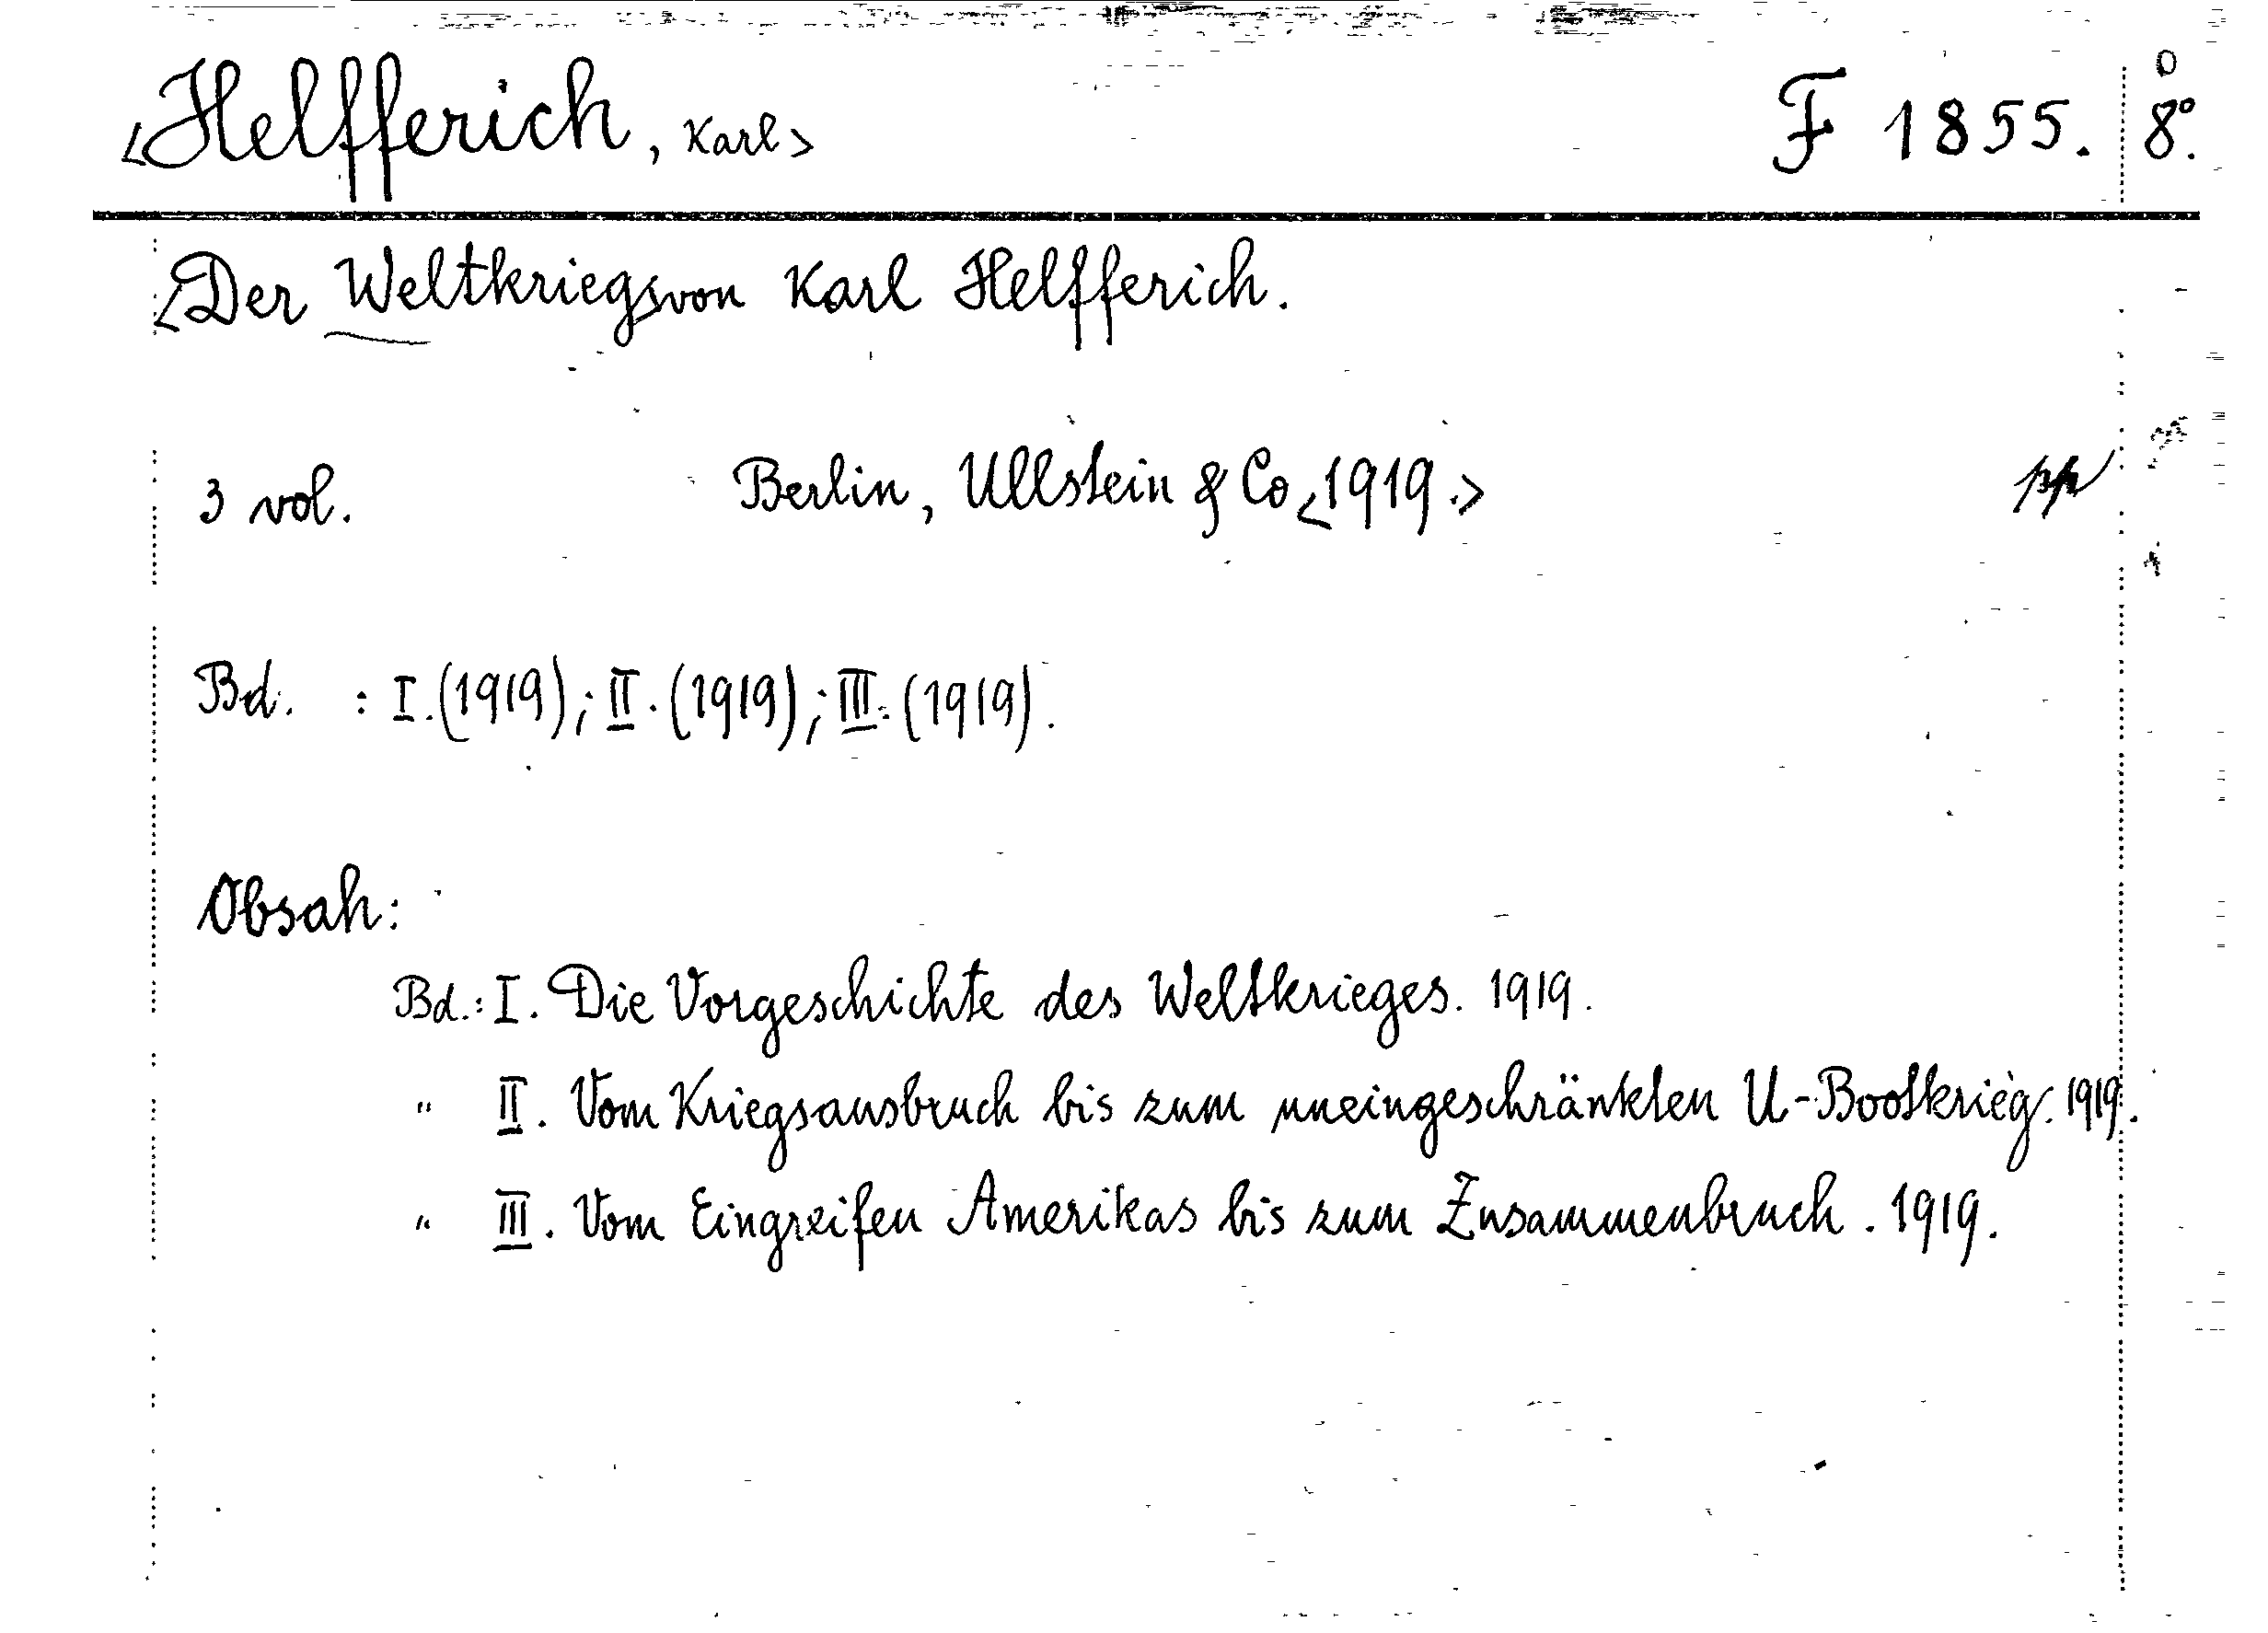 <Helfferich, Karl> F 1855. 8°.
<Der Weltkrieg> von Karl Helfferich.
3 vol. Berlin, Ullstein & Co <1919.>
Bd. : I. (1919); II. (1919); III. (1919).
Obsah:
Bd.: I. Die Vorgeschichte des Weltkrieges. 1919.
" II. Vom Kriegsausbruch bis zum uneingeschränkten U-Bootkrieg. 1919.
" III. Vom Eingreifen Amerikas bis zum Zusammenbruch. 1919.